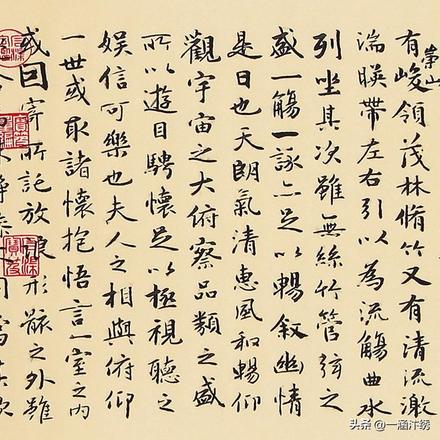 崇山
有峻領茂林脩竹又有清流激
湍暎帶左右引以為流觴曲水
列坐其次雖無絲竹管弦之
盛一觴一詠亦足以暢敘幽情
是日也天朗氣清惠風和暢仰
觀宇宙之大俯察品類之盛
所以遊目騁懷足以極視聽之
娛信可樂也夫人之相與俯仰
一世或取諸懷抱悟言一室之內
或因寄所託放浪形骸之外雖
头条 @一涵汴绣